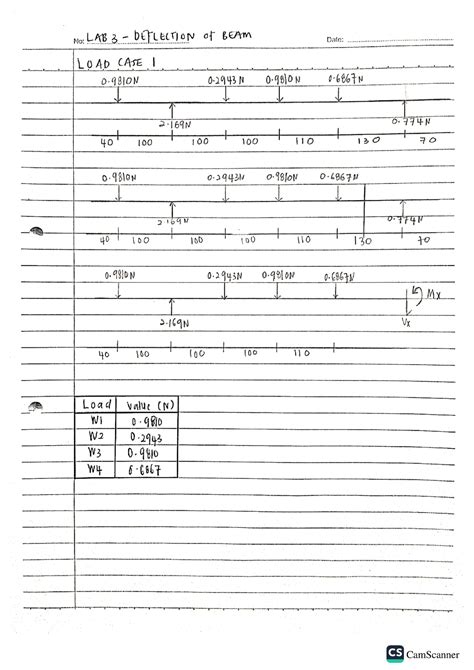 No: LAB 3 - DEFLECTION of BEAM Date:
LOAD CASE 1
0.9810N 0.2943N 0.9810N 0.6867N
2.169N 0.774N
40 100 100 100 110 130 70
0.9810N 0.2943N 0.9810N 0.6867N
2.169N 0.774N
40 100 100 100 110 130 70
0.9810N 0.2943N 0.9810N 0.6867N
Mx
2.169N Vx
40 100 100 100 110
Load Value (N)
W1 0.9810
W2 0.2943
W3 0.9810
W4 0.6867
CS CamScanner